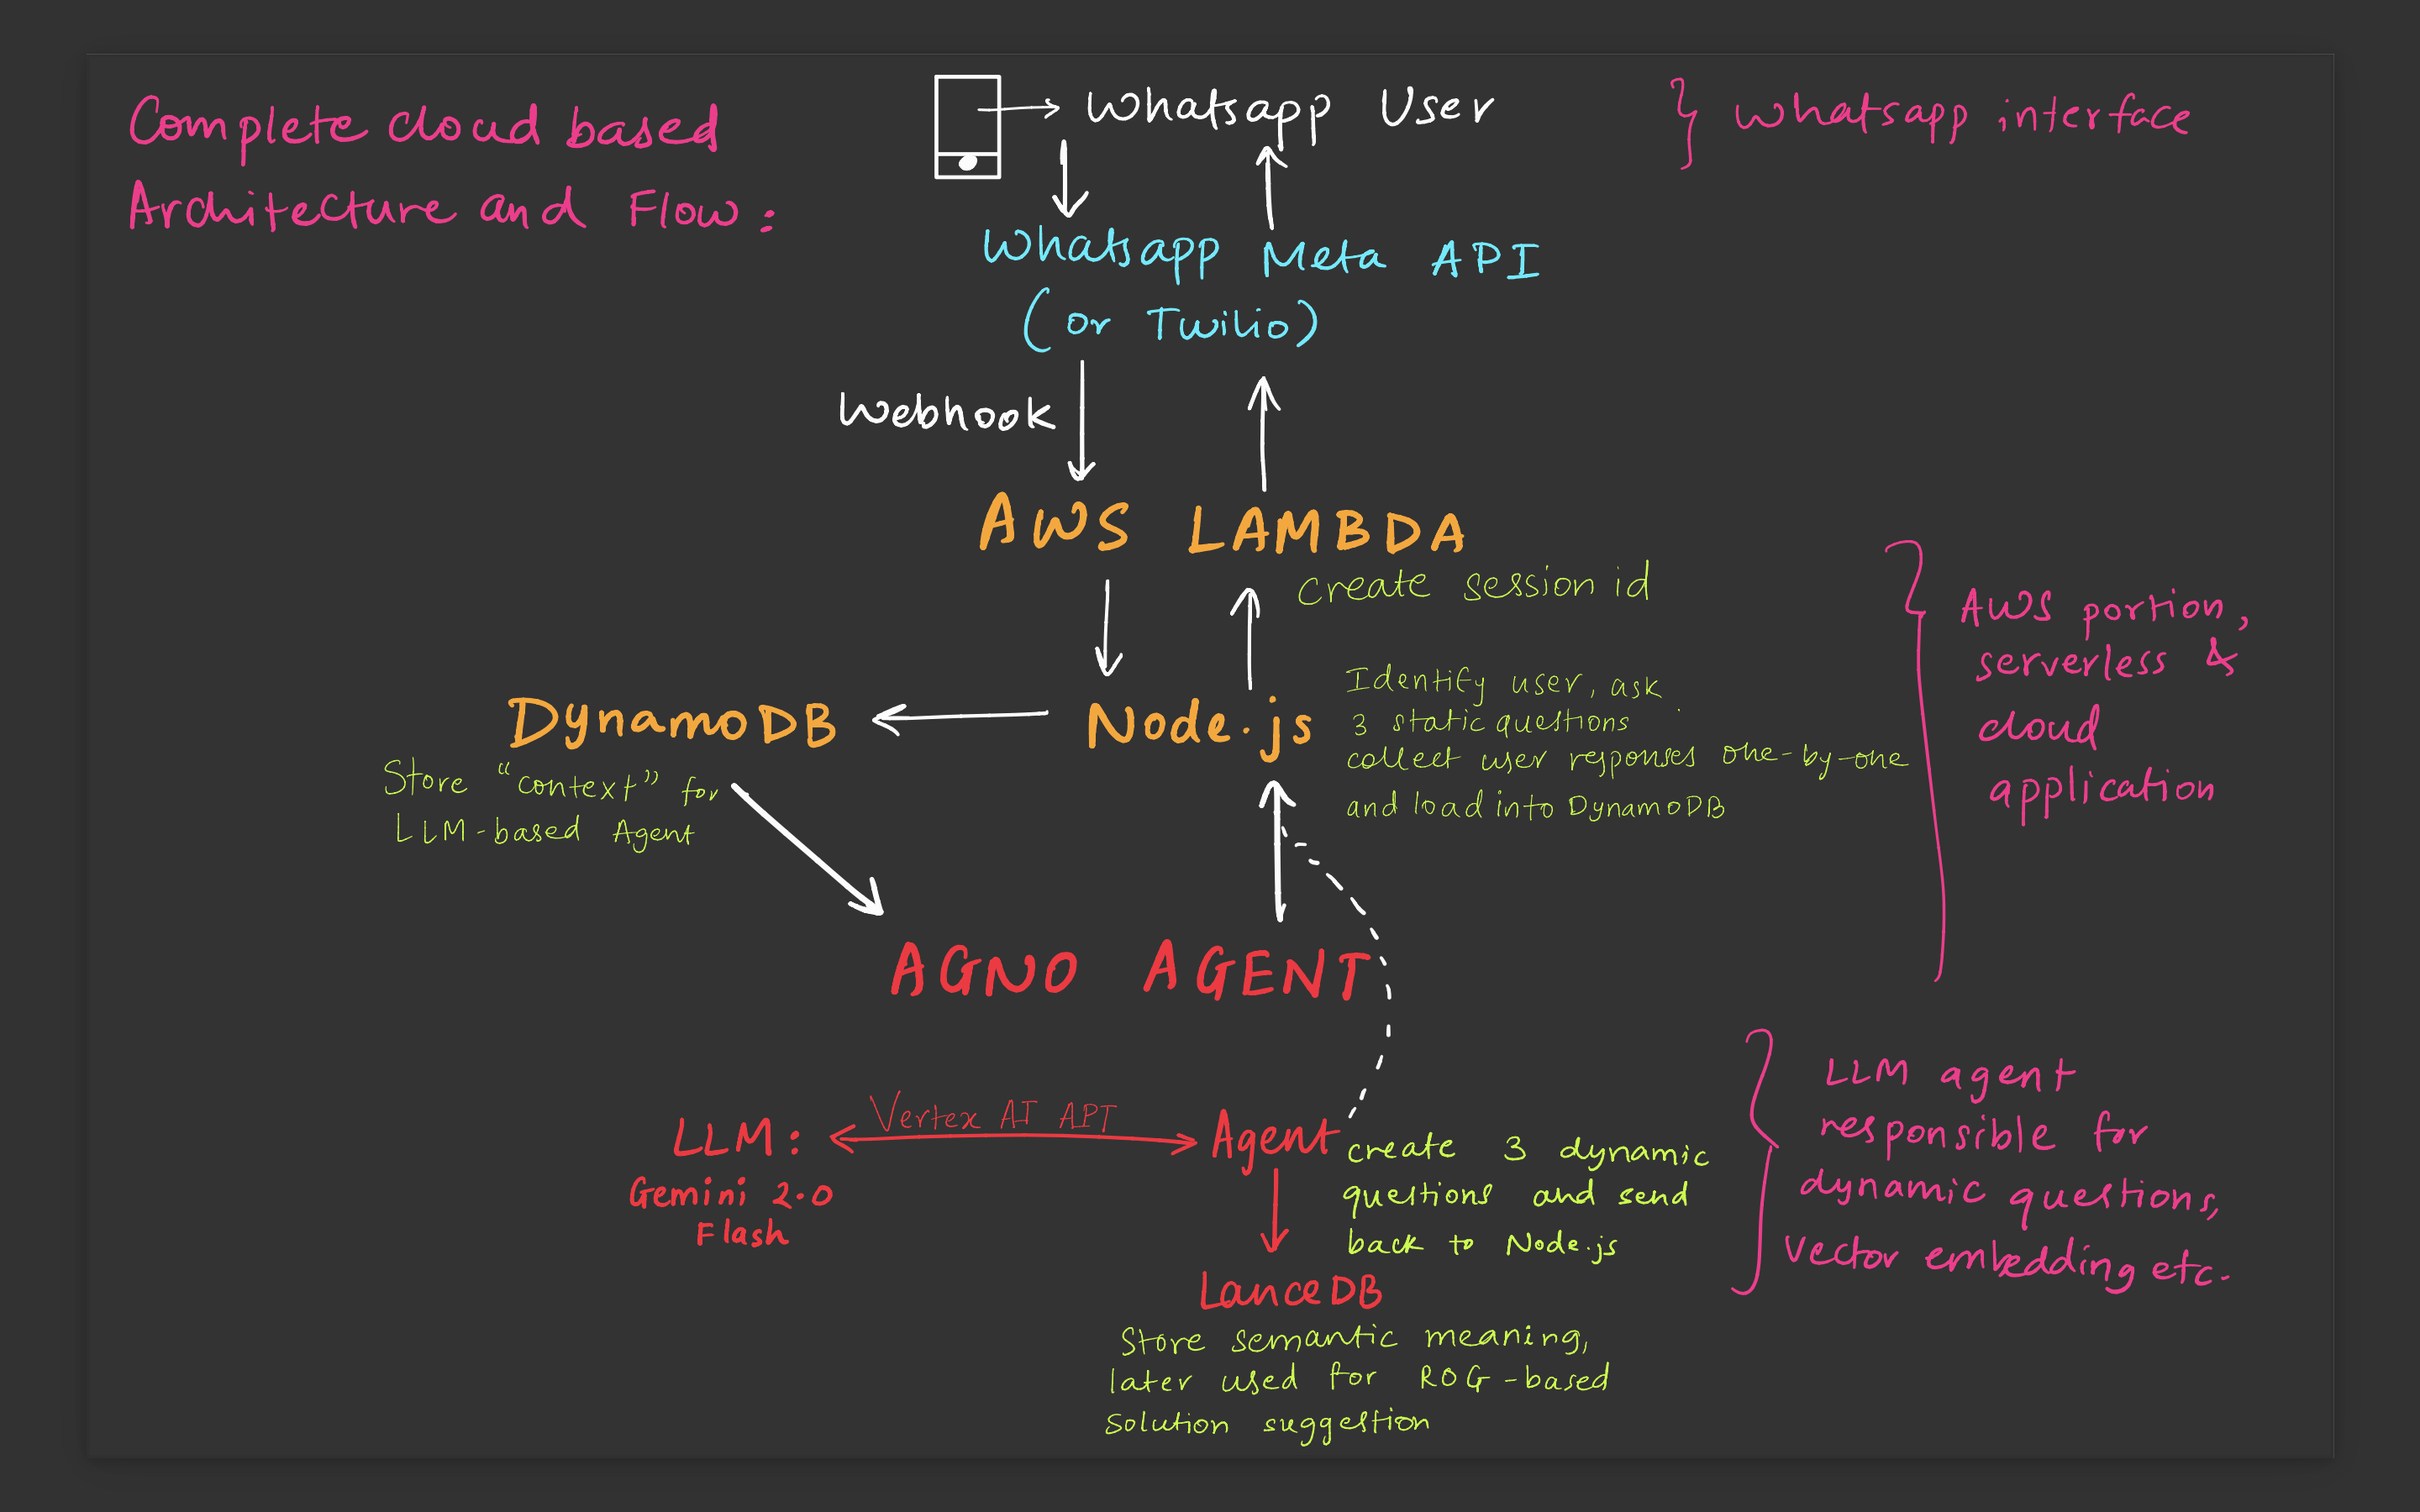 Complete cloud based
Architecture and Flow:
Whatsapp User
Whatsapp interface
Whatsapp Meta API
(or Twilio)
Webhook
AWS LAMBDA
Create session id
AWS portion,
serverless &
cloud
application
DynamoDB
Node.js
Identify user, ask
3 static questions
collect user responses one-by-one
and load into DynamoDB
Store "context" for
LLM-based Agent
AGNO AGENT
LLM:
Vertex AI API
Agent
Gemini 2.0
Flash
create 3 dynamic
questions and send
back to Node.js
LLM agent
responsible for
dynamic questions,
vector embedding etc.
LanceDB
Store semantic meaning,
later used for ROG-based
solution suggestion